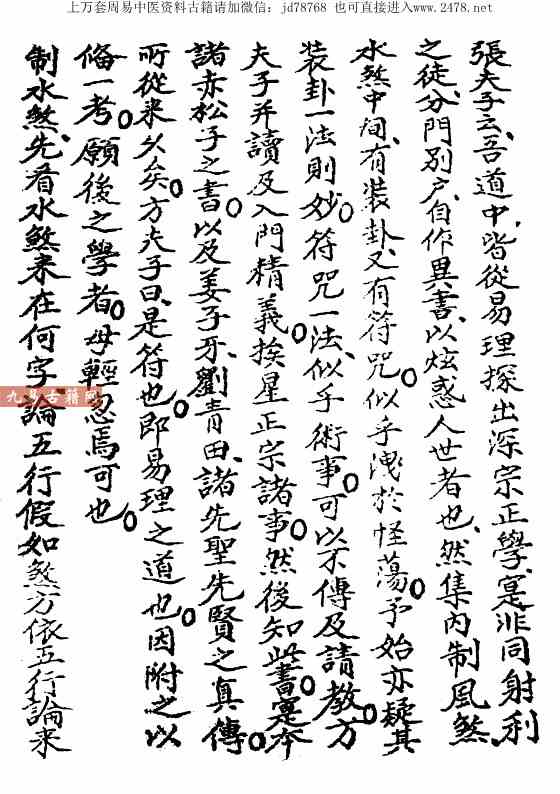 上万套周易中医资料古籍请加微信：jd78768 也可直接进入www.2478.net
張夫子云、吾道中、皆從易理探出深宗正學、寔非同射利
之徒、分門別户、自作異書、以炫惑人世者也、然集内制風煞
水煞中间、有裝卦、又有符咒。似乎洩於怪蕩。予始亦疑其
裝卦一法則妙。符咒一法、似乎術事。可以不傳及請教。方
夫子并讀及入門精義。挨星正宗諸事。然後知此書。寔本
諸赤松子之書。以及姜子牙、劉青田、諸先聖先賢之真傳。
所從来久矣。方夫子曰、是符也。即易理之道也。因附之以
俻一考。願後之學者。毋輕忽焉可也。
制水煞、先看水煞来在何字、論五行假如煞方依五行論来
九易古籍网